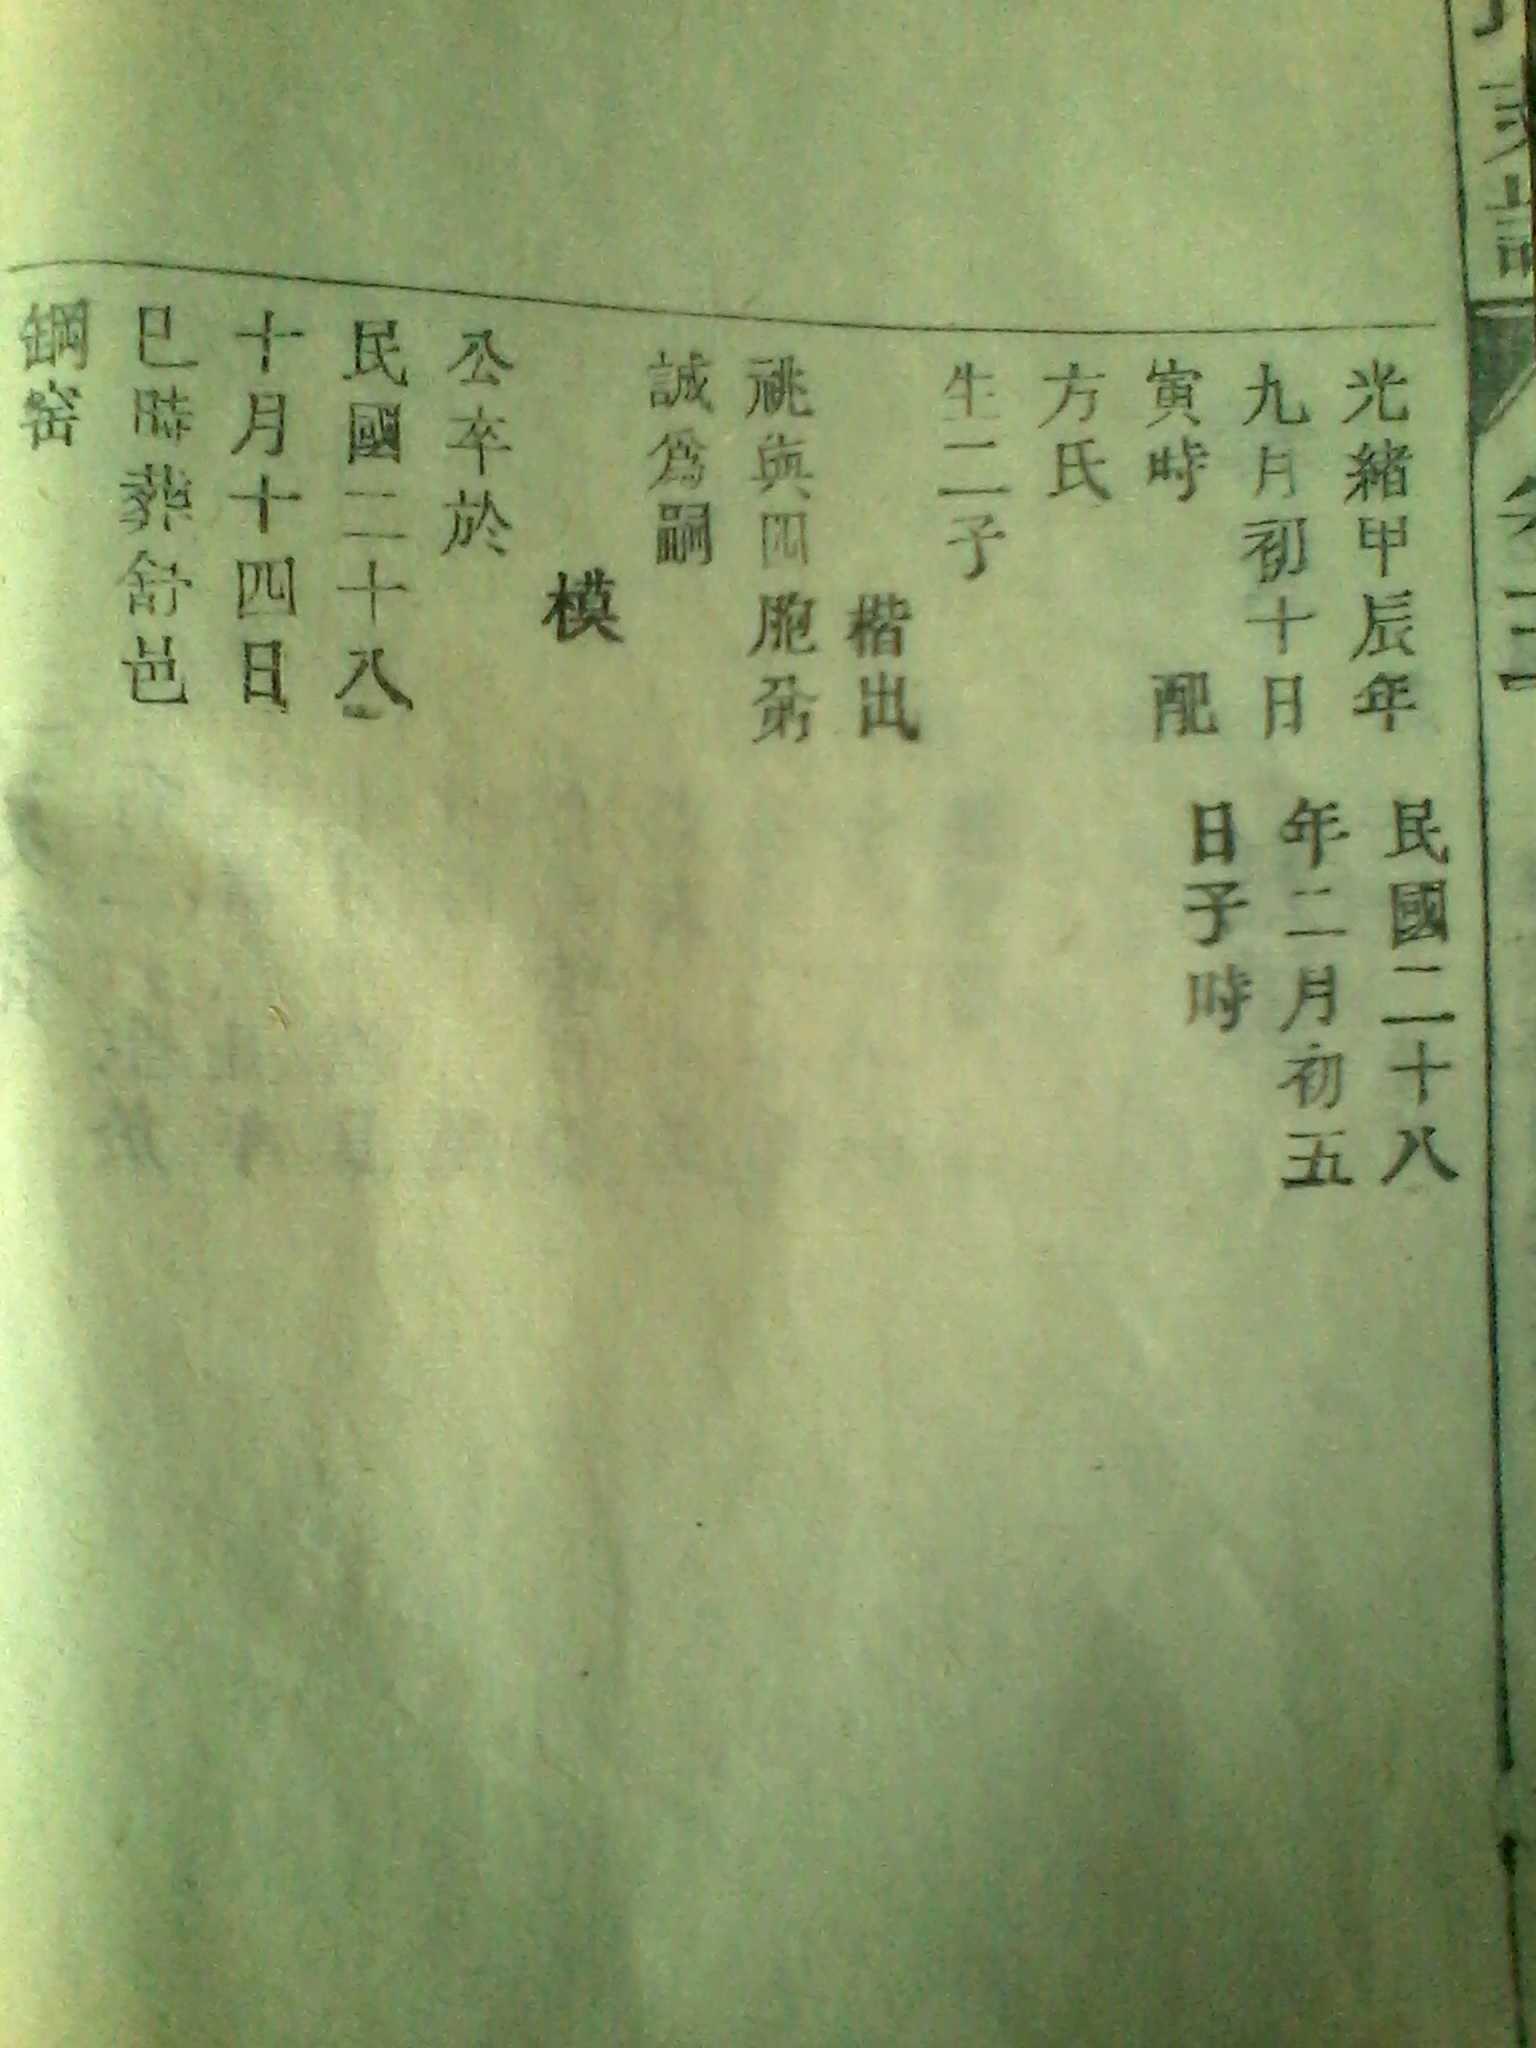 光緒甲辰年
九月初十日
寅時 配
方氏
生二子
楷出
祧與四胞弟
誠爲嗣
模
公卒於
民國二十八
十月十四日
巳時葬舒邑
鋼窑
民國二十八
年二月初五
日子時